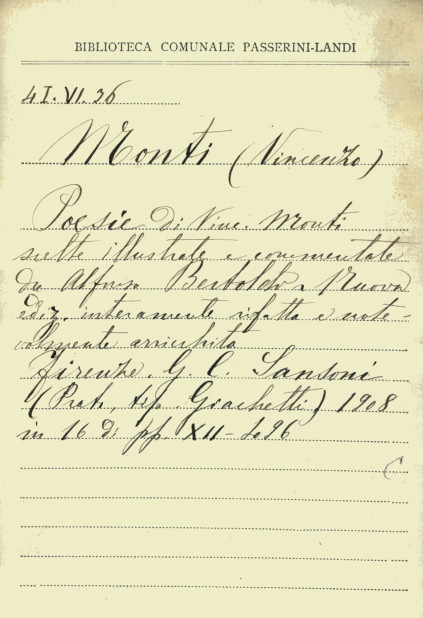 BIBLIOTECA COMUNALE PASSERINI-LANDI
4I.VI.36
Monti (Vincenzo)
Poesie di Vinc. Monti
scelte illustrate e commentate
da Alfonso Bertoldi. Nuova
ediz. interamente rifatta e note-
volmente arricchita
Firenze, G. C. Sansoni
(Prato, tip. Giachetti) 1908
in 16° di pp XII-496
C